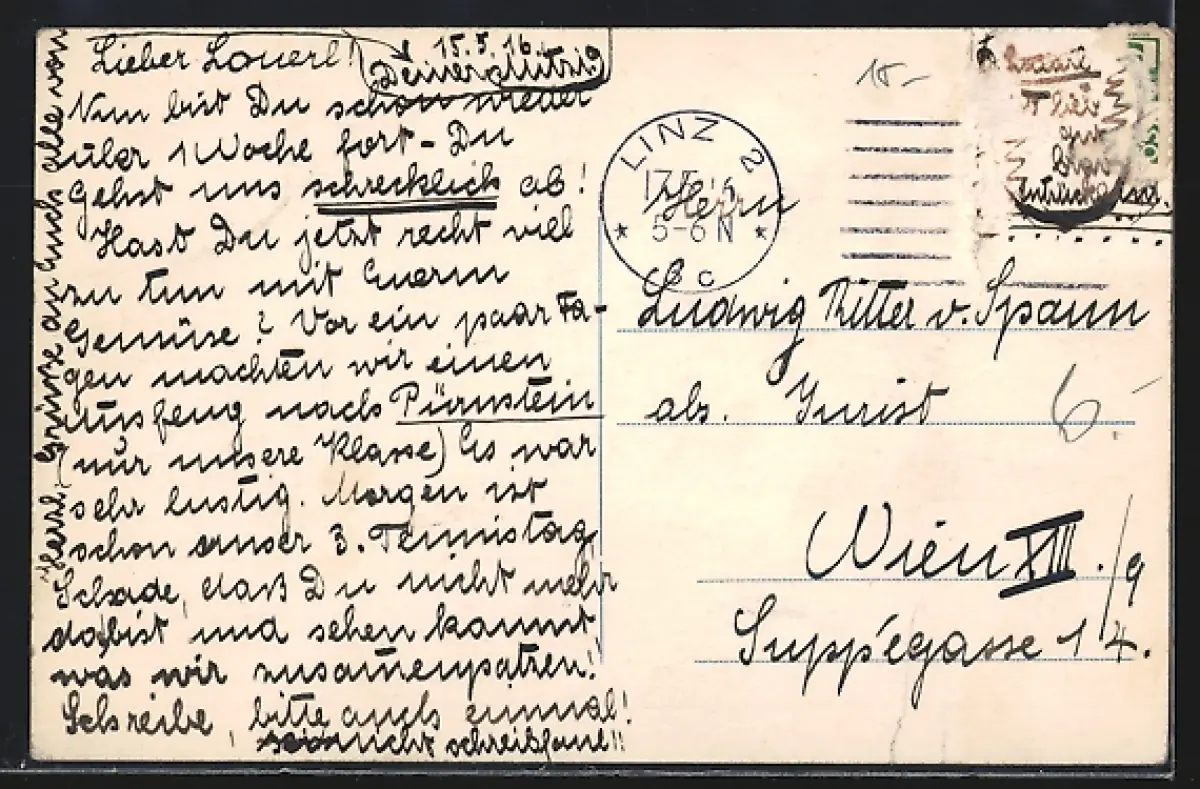 Lieber Louerl!
15.5.16.
Deine
Nun bist Du schon wieder
über 1 Woche fort - Du
Gehst uns schrecklich ab!
Hast Du jetzt recht viel
zu tun mit Euerm
Gemüse? Vor ein paar Ta-
gen machten wir einen
Ausflug nach Pürnstein
(nur unsere Klasse) Es war
sehr lustig. Morgen ist
schon unser 3. Tennistag
Schade, daß Du nicht mehr
da bist und sehen kannst,
was wir zusamenpatzen!
Schreibe, bitte auch einmal!
nicht schreibfaul!!
Herzl. Grüsse an Euch alle von
18-
LINZ 2
5-6 N
c
Herrn
Ludwig Ritter v. Spaun
abs. Jurist
6.-
Wien XIII./9
Suppégasse 14.